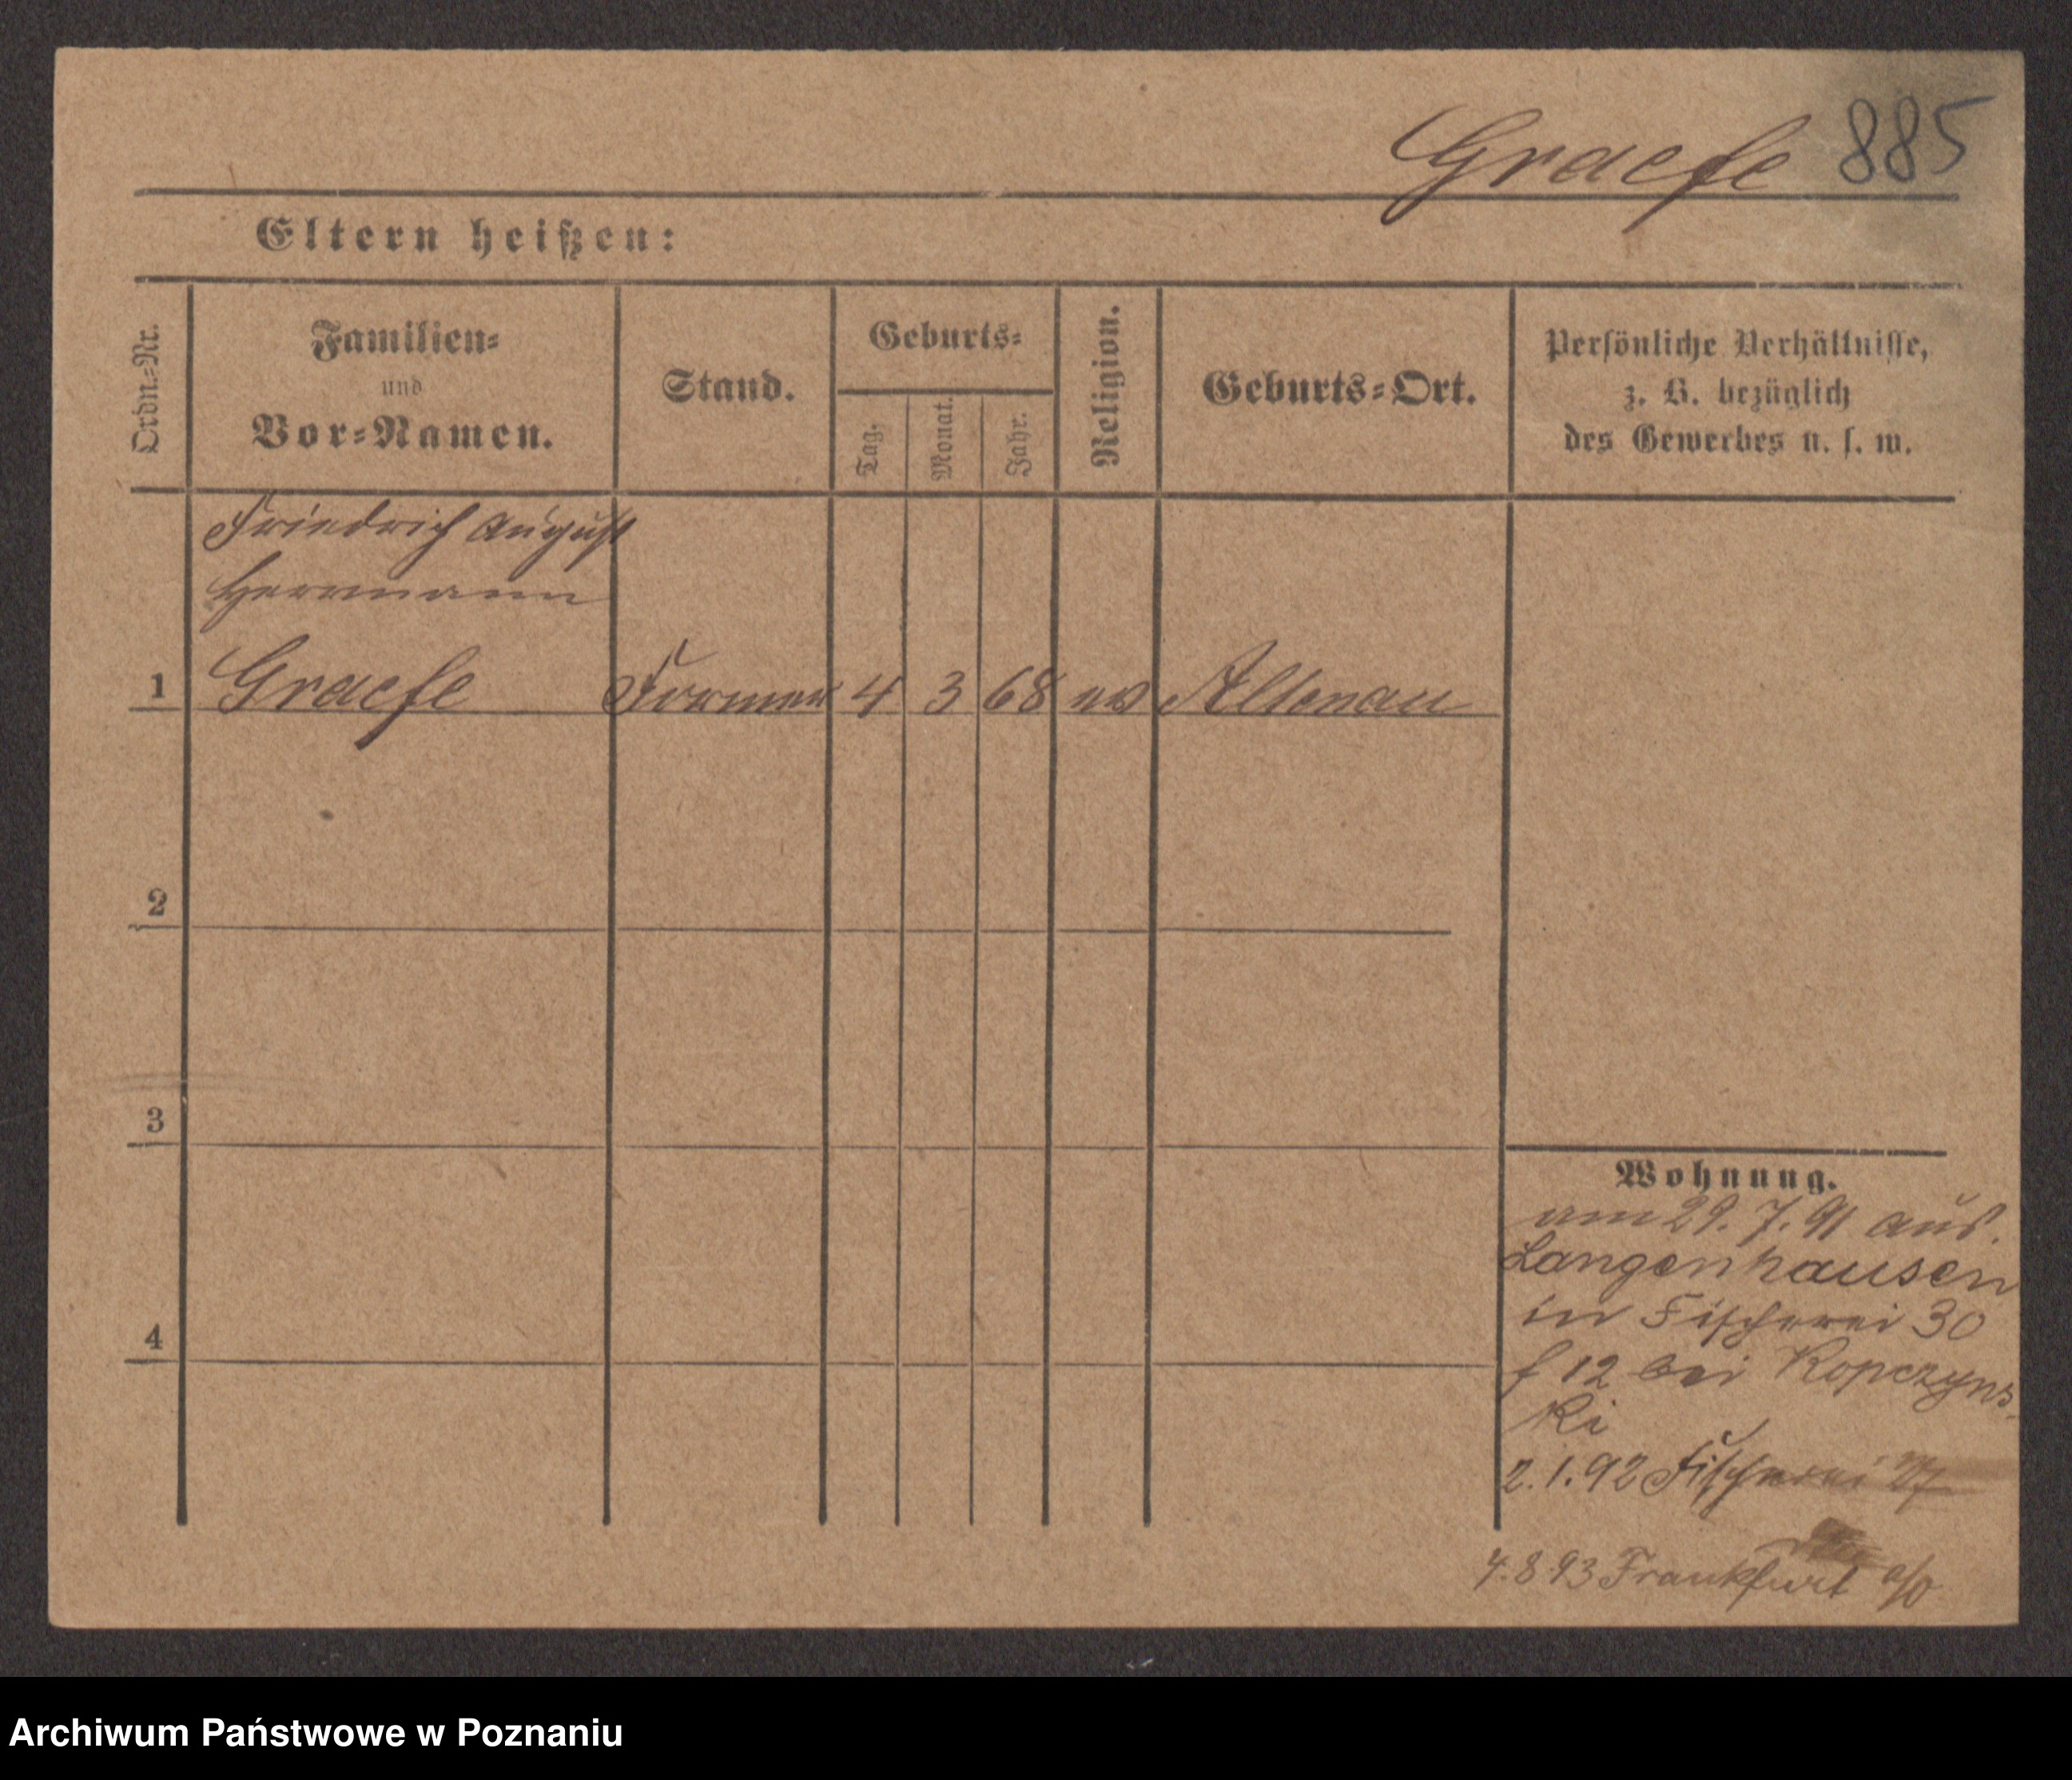 Graefe 885
Eltern heißen:
Ordn.=Nr.
Familien=
und
Vor=Namen.
Stand.
Geburts=
Tag.
Monat.
Jahr.
Religion.
Geburts=Ort.
Persönliche Verhältnisse,
z. B. bezüglich
des Gewerbes u. s. w.
Friedrich August
Herrmann
1 Graefe Former 4 3 68 ev Altenau
2
3
4
Wohnung.
am 29. 7. 91 aus.
Langenhausen
in Fischerei 30
f 12 bei Kopczyns-
ki
2.1.92 Fischerei 27
4.8.93 Frankfurt a/O
Archiwum Państwowe w Poznaniu